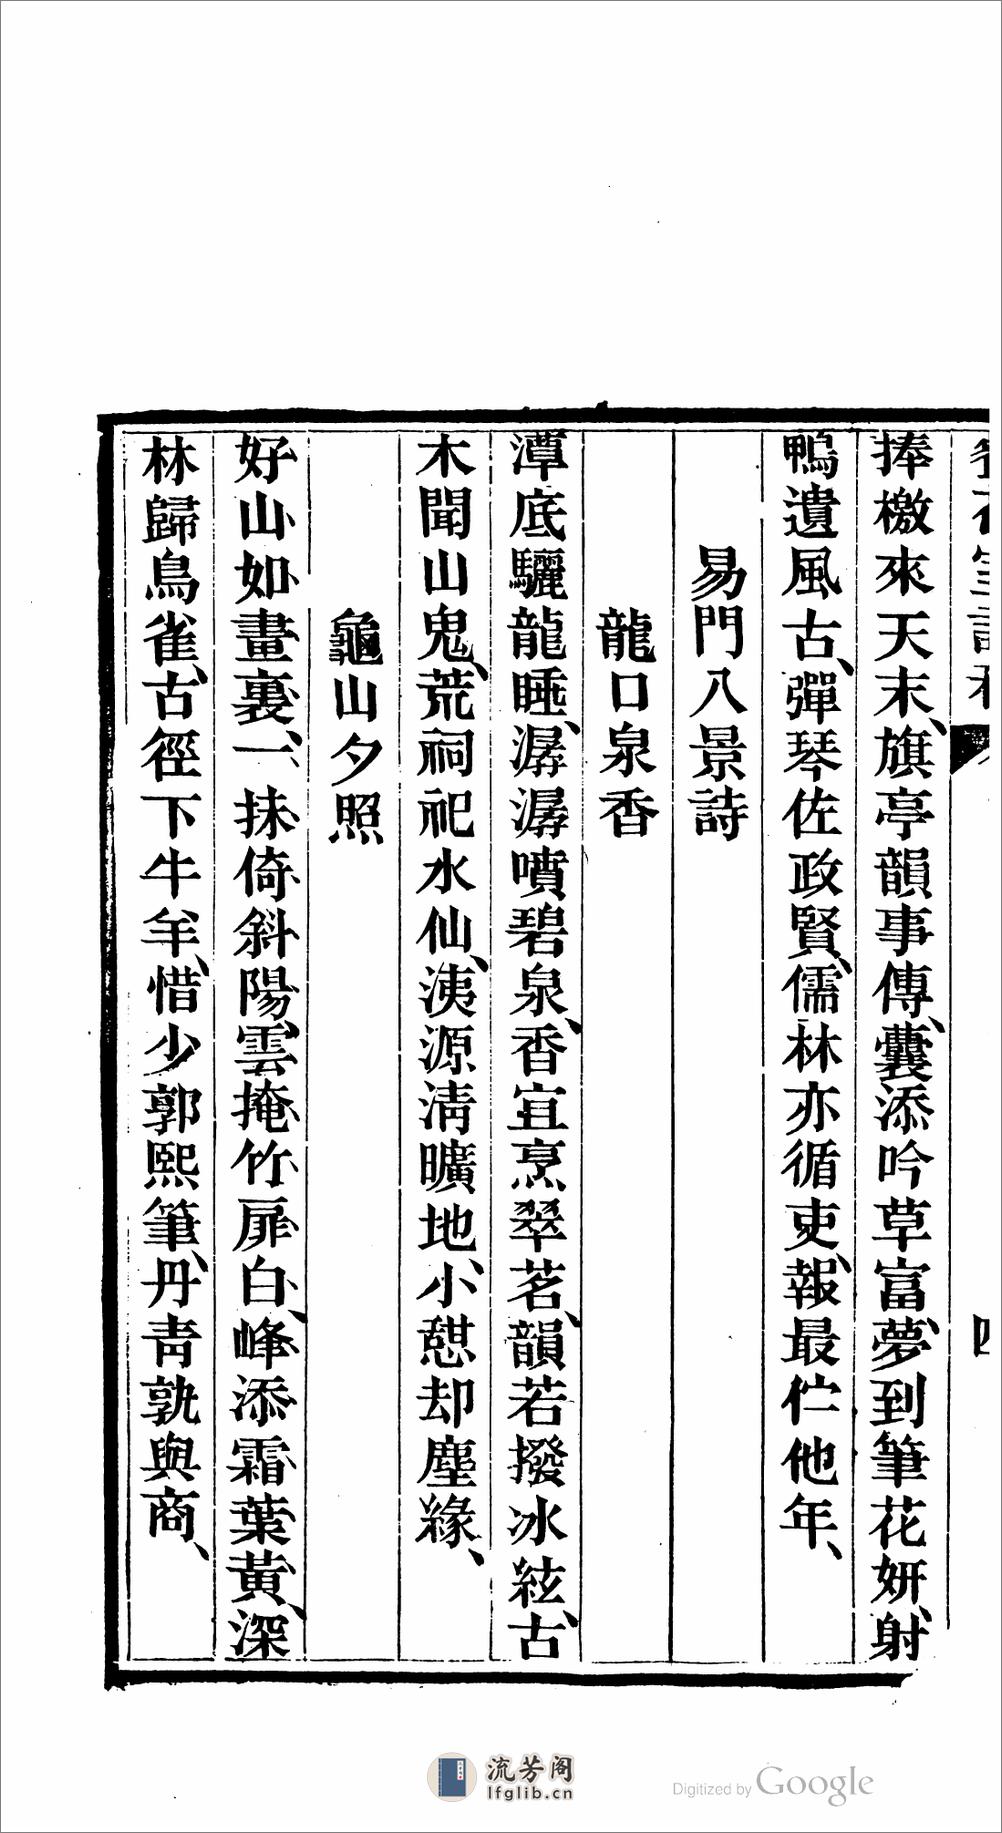 捧檄來天末、旗亭韻事傳、囊添吟草富、夢到筆花妍、射
鴨遺風古、彈琴佐政賢、儒林亦循吏、報最伫他年、
易門八景詩
龍口泉香
潭底驪龍睡、潺潺噴碧泉、香宜烹翠茗、韻若撥冰絃、古
木聞山鬼、荒祠祀水仙、洟源淸曠地、小憇却塵緣、
龜山夕照
好山如畫裏、一抹倚斜陽、雲掩竹扉白、峰添霜葉黃、深
林歸鳥雀、古徑下牛羊、惜少郭熙筆、丹靑孰與商、
四
流芳阁
lfglib.cn
Digitized by Google